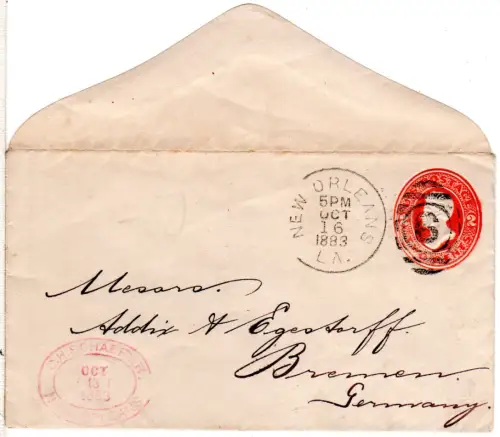 NEW ORLEANS
5PM
OCT
16
1883
LA.
Messrs.
Addix & Egestorff.
Bremen.
Germany.
OCT
1883